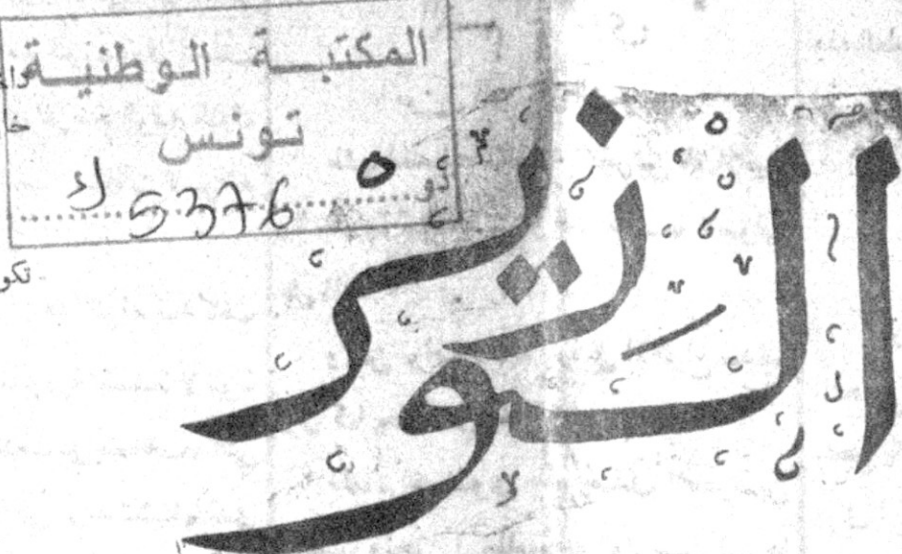 المكتبة الوطنية
تونس
دو 5376 ك
الوزير